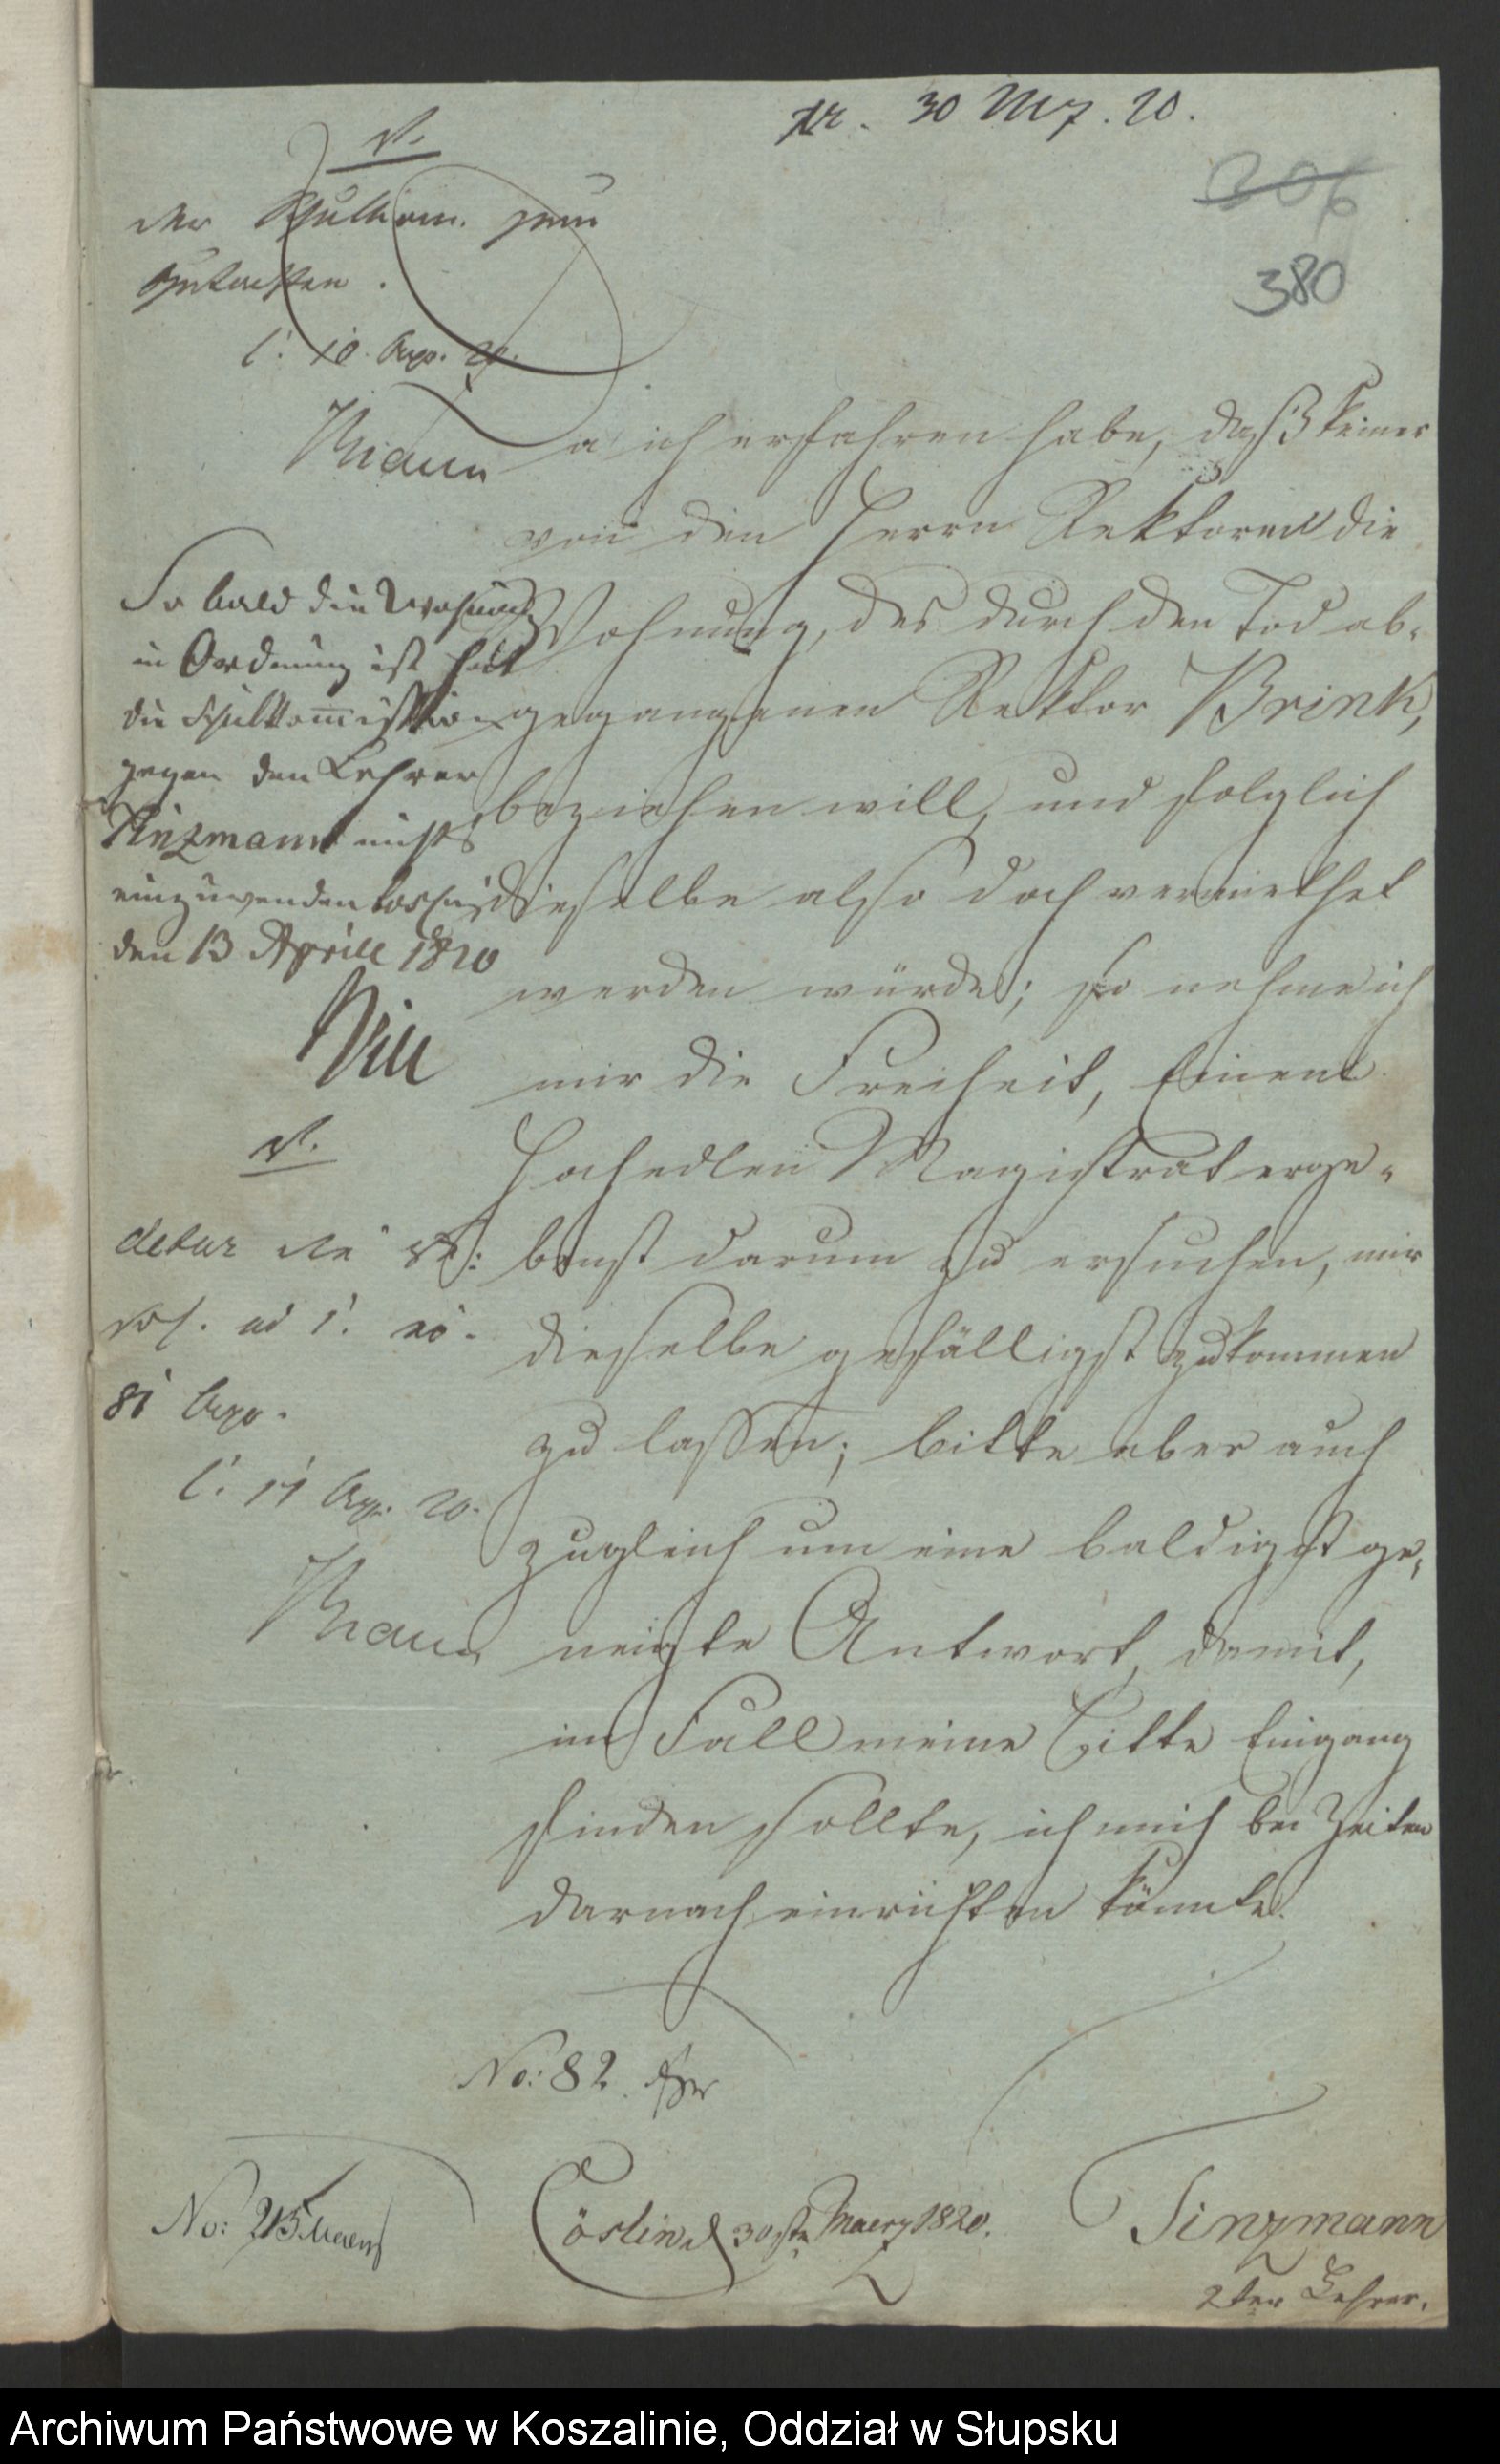 pr. 30 Mz. 20.
306
380
V.
der Schulkom. zum
Gutachten.
C. 10. Apr. 20.
Braun
Da ich erfahren habe, daß keiner
von den Herrn Rektoren die
Wohnung, des durch den Tod ab-
gegangenen Rektor Brink,
beziehen will, und folglich
dieselbe also doch vermiethet
werden würde; so nehme ich
mir die Freiheit, Einen
Hochedlen Magistrat erge-
benst darum zu ersuchen, mir
dieselbe gefälligst zukommen
zu lassen; bitte aber auch
zugleich um eine baldigst ge-
neigte Antwort, damit,
im Fall meine Bitte Eingang
finden sollte, ich mich bei Zeiten
darnach einrichten könnte.
So bald die Wohnung
in Ordnung ist hat
die Schulkommission
gegen den Lehrer
Sinzmann nichts
einzuwenden Coeslin
den 13 Aprill 1820
V.
detur
ad
Apr.
C. 17 Apr. 20.
Braun
No: 82.
No: 215
Cöslin d 30ste Maerz 1820.
Sinzmann
2ter Lehrer.
Archiwum Państwowe w Koszalinie, Oddział w Słupsku